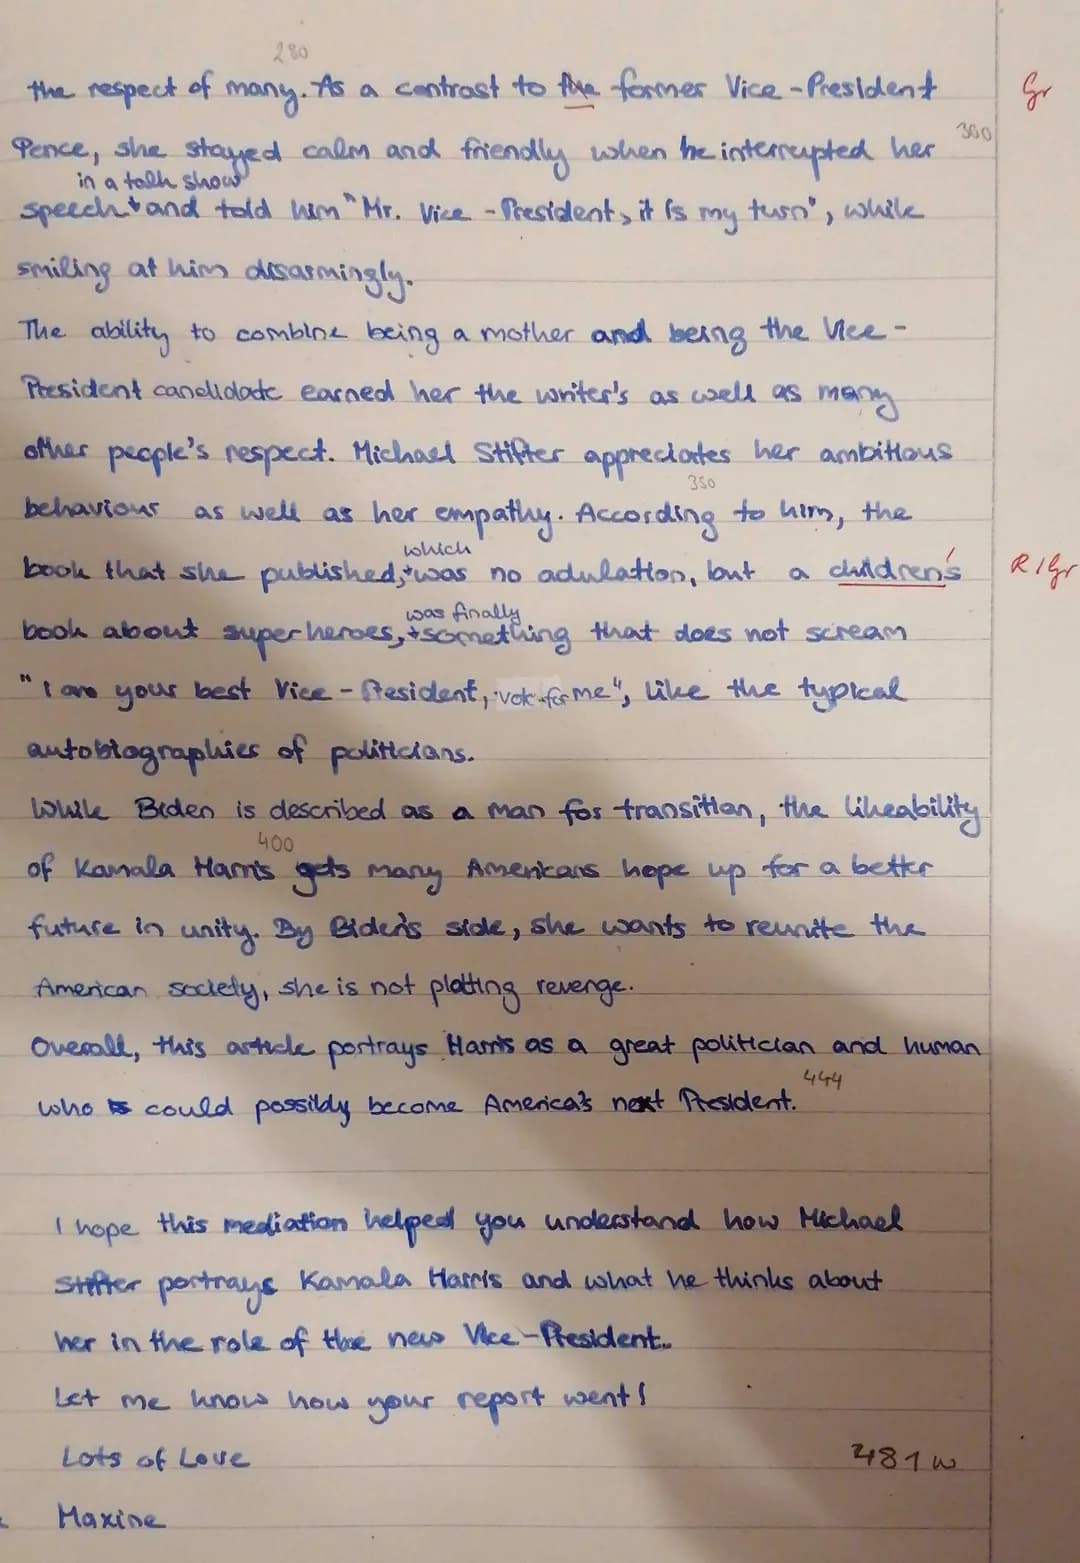 280
the respect of many. As a contrast to the former Vice-President Gr
Pence, she stayed calm and friendly when he interrupted her 300
in a talk show
speech and told him "Mr. Vice-President, it is my turn", while
smiling at him disarmingly.
The ability to combine being a mother and being the Vice-
President candidate earned her the writer's as well as many
other people's respect. Michael Stifter appreciates her ambitious
350
behaviour as well as her empathy. According to him, the
which
book that she published, was no adulation, but a children's R/Gr
was finally
book about superheroes, something that does not scream
"I am your best Vice-President, vote for me", like the typical
autobiographies of politicians.
While Biden is described as a man for transition, the likeability
400
of Kamala Harris gets many Americans hope up for a better
future in unity. By Biden's side, she wants to reunite the
American society, she is not plotting revenge.
Overall, this article portrays Harris as a great politician and human
444
who could possibly become America's next President.
I hope this mediation helped you understand how Michael
Stifter portrays Kamala Harris and what he thinks about
her in the role of the new Vice-President.
Let me know how your report went!
Lots of Love
481 w
Maxine